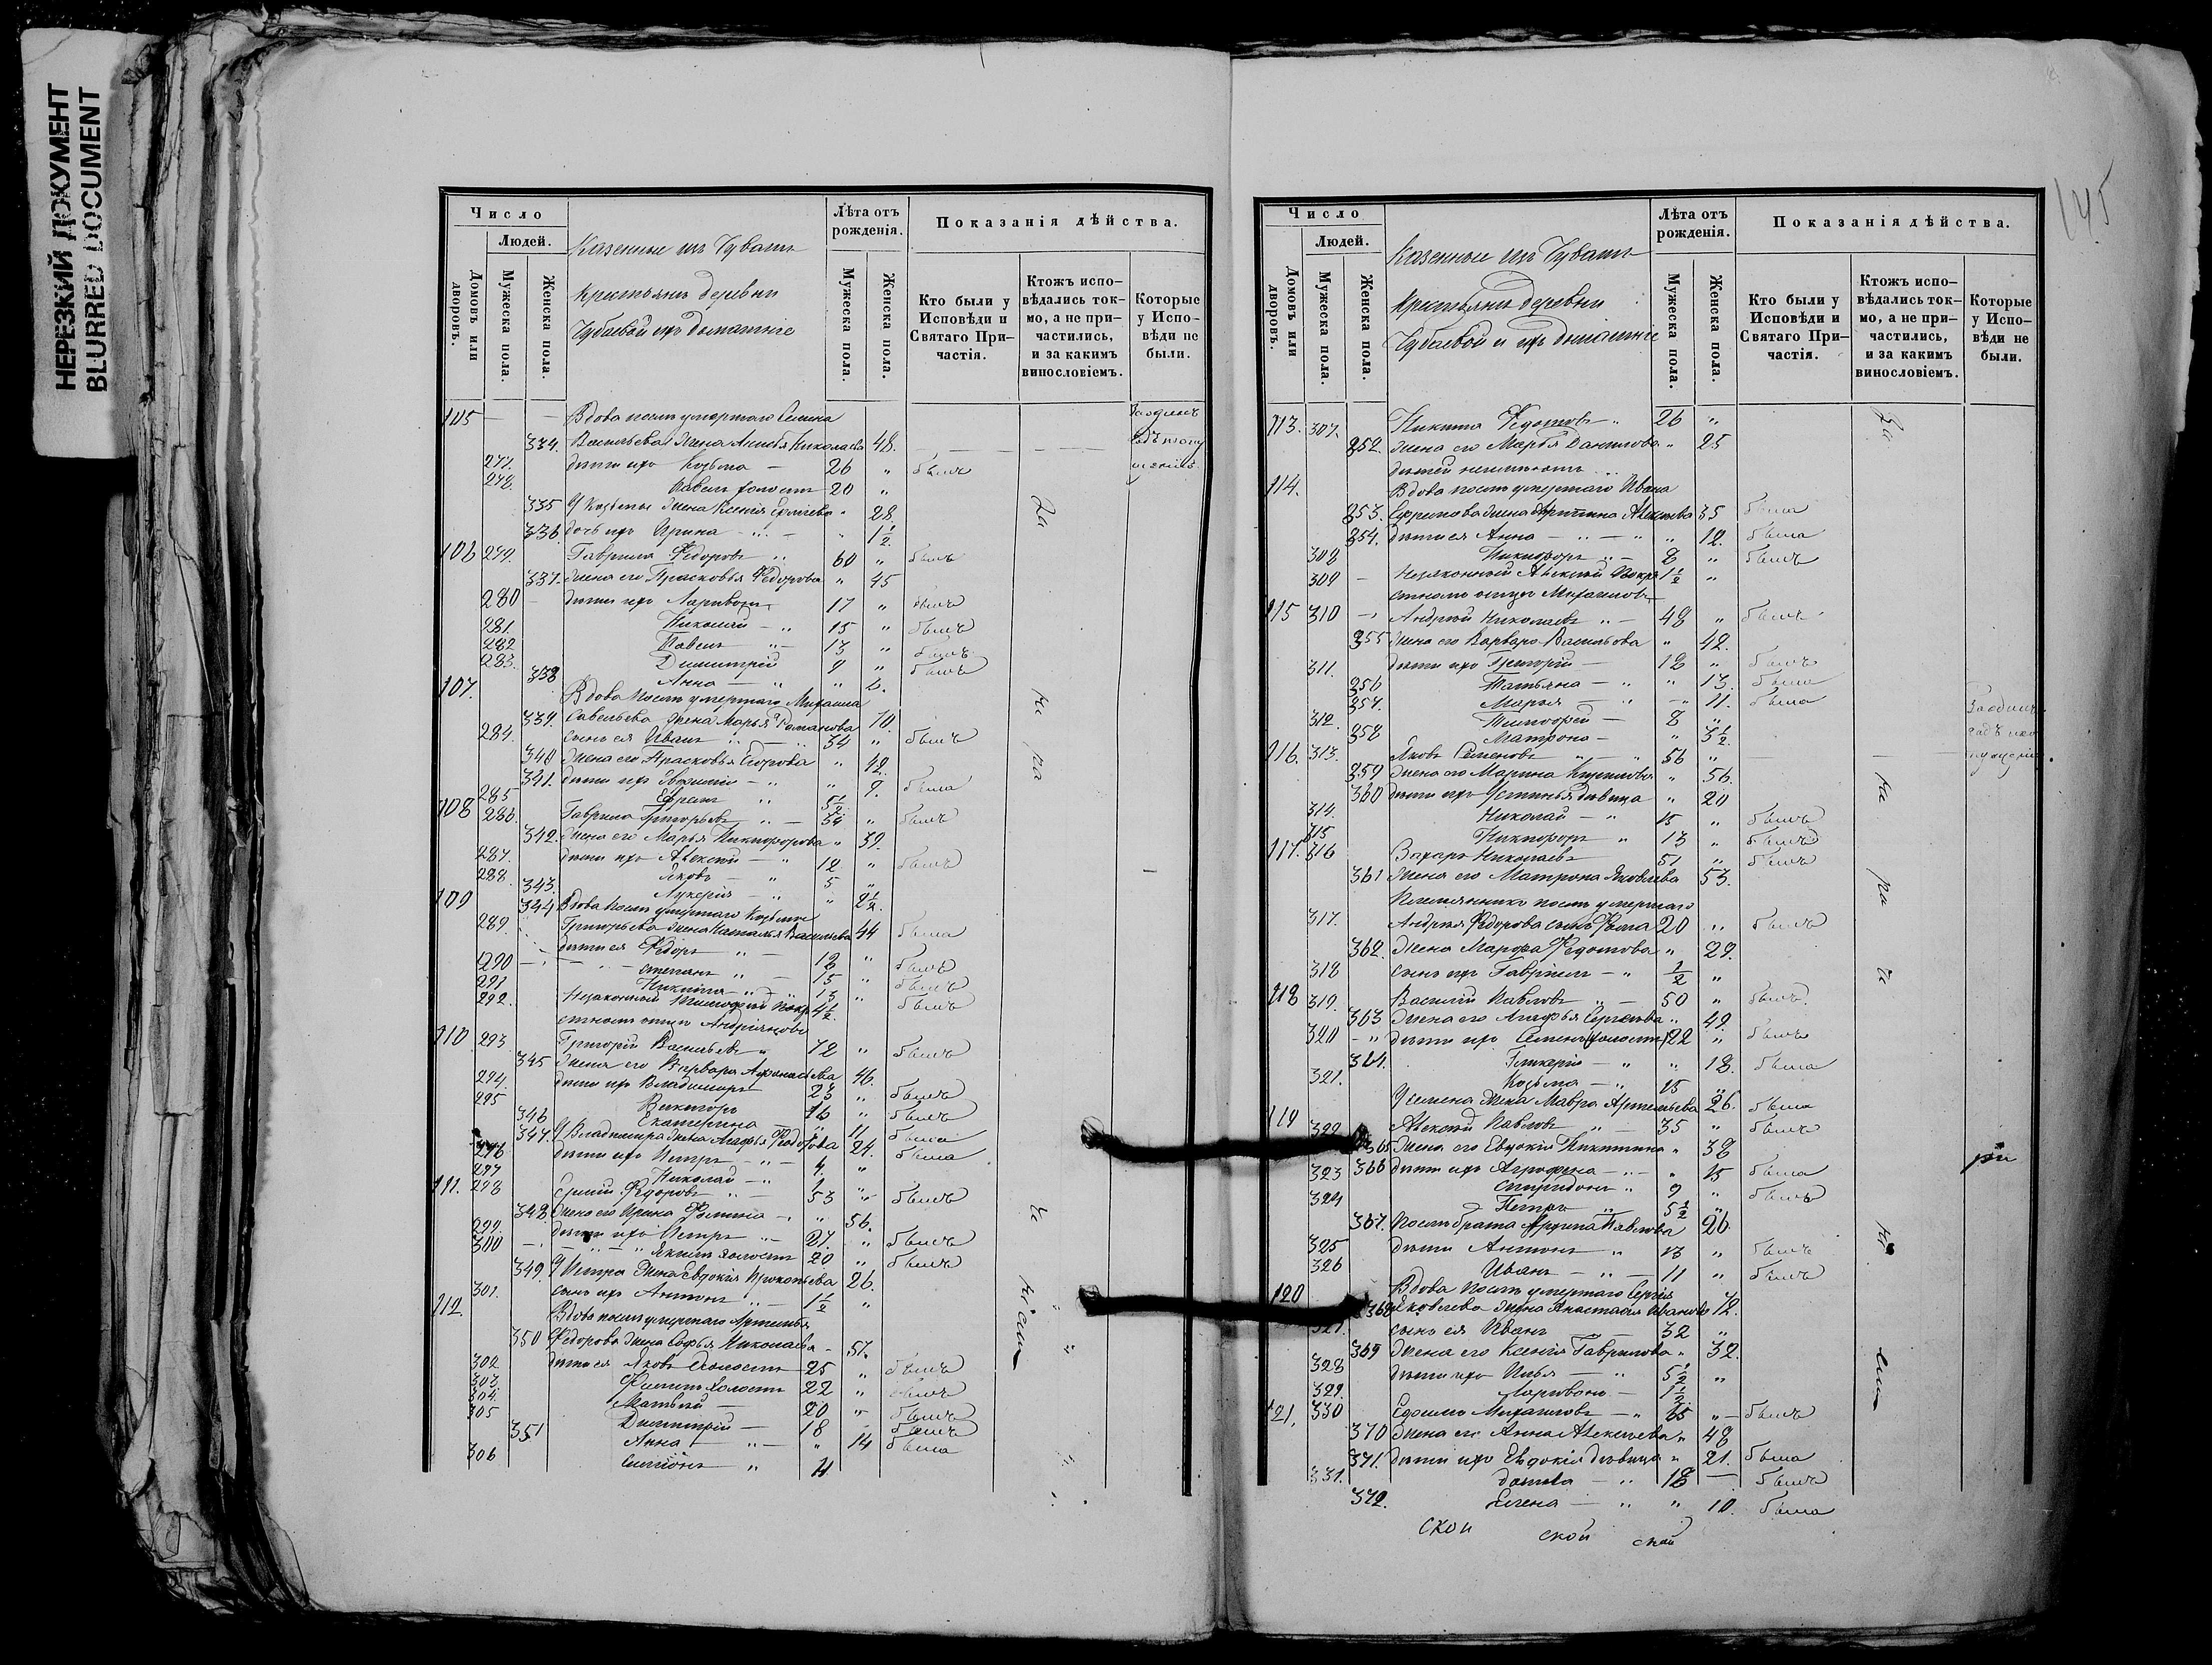 НЕРЕЗКИЙ ДОКУМЕНТ
BLURRED DOCUMENT
Число
Людей.
Домовъ или дворовъ.
Мужеска пола.
Женска пола.
Казенные изъ Чувашъ
Крестьянъ деревни
Чубаевой ихъ домашніе
Лѣта отъ рожденія.
Мужеска пола.
Женска пола.
Показанія дѣйства.
Кто были у Исповѣди и Святаго При-частія.
Ктожъ испо-вѣдались ток-мо, а не при-частились, и за какимъ винословіемъ.
Которые у Испо-вѣди не были.
105 Вдова послѣ умершаго Семена
334. Васильева жена Анисья Николаева 48.
277. дѣти ихъ Козьма 26 " былъ
278. Павелъ холостъ 20 "
335 У Козьмы жена Ксенія 28
336. дочь ихъ Ирина 1½
106 279. Гаврила Федоровъ 60 " былъ
337. жена его Прасковья Федорова " 45
280 дѣти ихъ Ларивонъ 17 " былъ
281. Николай 15 " былъ
282 Павелъ 13 " былъ
283. Димитрій 9 " былъ
338 Анна " 6.
107. Вдова послѣ умершаго Михаила
339. Савельева жена Марья Романова 70.
284. сынъ ея Иванъ 34 " былъ
340 жена его Прасковья Егорова " 42.
341. дѣти ихъ " 9. была
285 Ефремъ 5½
108 286. Гаврила Григорьевъ 34 " былъ
342. жена его Марья Никифорова " 39.
287. дѣти ихъ Алексѣй 12 " былъ
288. Яковъ 5 "
343. Лукерія " 2½.
109 344 Вдова послѣ умершаго Козьмы
Григорьева жена Наталья Васильева 44 была
289. дѣти ея Федоръ 18 " былъ
290 Степанъ 15 " былъ
291 Никита 13 " былъ
292. Незаконный Тимофей 4½.
отцу Андріяновъ
110 293 Григорій Васильевъ 72 " былъ
345 жена его Варвара Афанасьева 46.
294. дѣти ихъ Владимиръ 23 " былъ
295 Викторъ 16 " былъ
346 Екатерина " 11 была
347. У Владимира жена Агафья Федорова 24. была
296 дѣти ихъ Петръ 4. "
297 Николай 1 "
111. 298 Сергій Федоровъ 53 " былъ
348. жена его Ирина Фомина " 56.
299. дѣти ихъ Петръ 27. " былъ
300 Якимъ холостъ 20 " былъ
349. У Петра жена Евдокія Прокопьева 26.
301. сынъ ихъ Антонъ 1½ "
112. Вдова послѣ умершаго Артемья
350 Федорова жена Софья Николаева 51.
302 дѣти ея Яковъ холостъ 25 " былъ
303 Филипъ холостъ 22 " былъ
304 Матвей 20 " былъ
305 Димитрій 18 былъ
351 Анна " 14 была
306 Симіонъ " 11
145
Число
Людей.
Домовъ или дворовъ.
Мужеска пола.
Женска пола.
Казенные изъ Чувашъ
Крестьянъ деревни
Чубаевой и ихъ домашніе
Лѣта отъ рожденія.
Мужеска пола.
Женска пола.
Показанія дѣйства.
Кто были у Исповѣди и Святаго При-частія.
Ктожъ испо-вѣдались ток-мо, а не при-частились, и за какимъ винословіемъ.
Которые у Испо-вѣди не были.
113. 307. Никита Федотовъ 26 "
352. жена его Марья Данилова " 25
114. Вдова послѣ умершаго Ивана
353. Ефремова жена Алексѣева 35 была
354. дѣти ея Анна " 12. была
308 Никифоръ 8 " былъ
309 Незаконный Алексѣй 1½ "
отцу Михаиловъ
115 310 Андрей Николаевъ 48 " былъ
355 жена его Варвара Васильева " 42.
311. дѣти ихъ Григорій 18 " былъ
356 Татьяна " 13. была
357. Марья " 11. была
312. Тимофей 8 "
358 Матрона " 3½.
116. 313. Яковъ Семеновъ 56 "
359 жена его Марина Кирилова " 56.
360 дѣти ихъ Устинья дѣвица " 20
314. Николай 15 " былъ
315 Никифоръ 13 " былъ
117. 316 Захаръ Николаевъ 51 " былъ
361 жена его Матрона Яковлева 53.
Племянникъ послѣ умершаго
317. Андрея Федорова сынъ Фома 20 " былъ
362. жена Марфа Федотова " 29.
318 сынъ ихъ Гавріилъ ½ "
118 319. Василій Павловъ 50 " былъ
363 жена его Агафья Сергѣева " 49.
320 дѣти ихъ Семенъ холостъ 22 " былъ
364. Гликерія " 18. была
321. Козьма 15 "
У Семена жена Мавра Артемьева 26. была
119 322 Алексѣй Павловъ 35 " былъ
365 жена его Евдокія Никитина " 38
366 дѣти ихъ Агрофена " 15 была
323 Спиридонъ 9 " былъ
324 Петръ 5½ "
367. Послѣ брата Павлова 26.
325 дѣти Антонъ 13 " былъ
326 Иванъ 11 " былъ
120 Вдова послѣ умершаго Сергія
368 Яковлева жена Анастасія Иванова 72.
327. сынъ ея Иванъ 32 "
369 жена его Ксенія Гаврилова " 32.
328 дѣти ихъ Илья 5½ "
329. Ларивонъ 1½
121. 330 Ефимъ Михаиловъ 65 " былъ
370 жена его Анна Алексѣева " 48
371. дѣти ихъ Евдокія дѣвица " 21. была
331. Данила 18 былъ
372. Елена " 10. была
ской ской ской